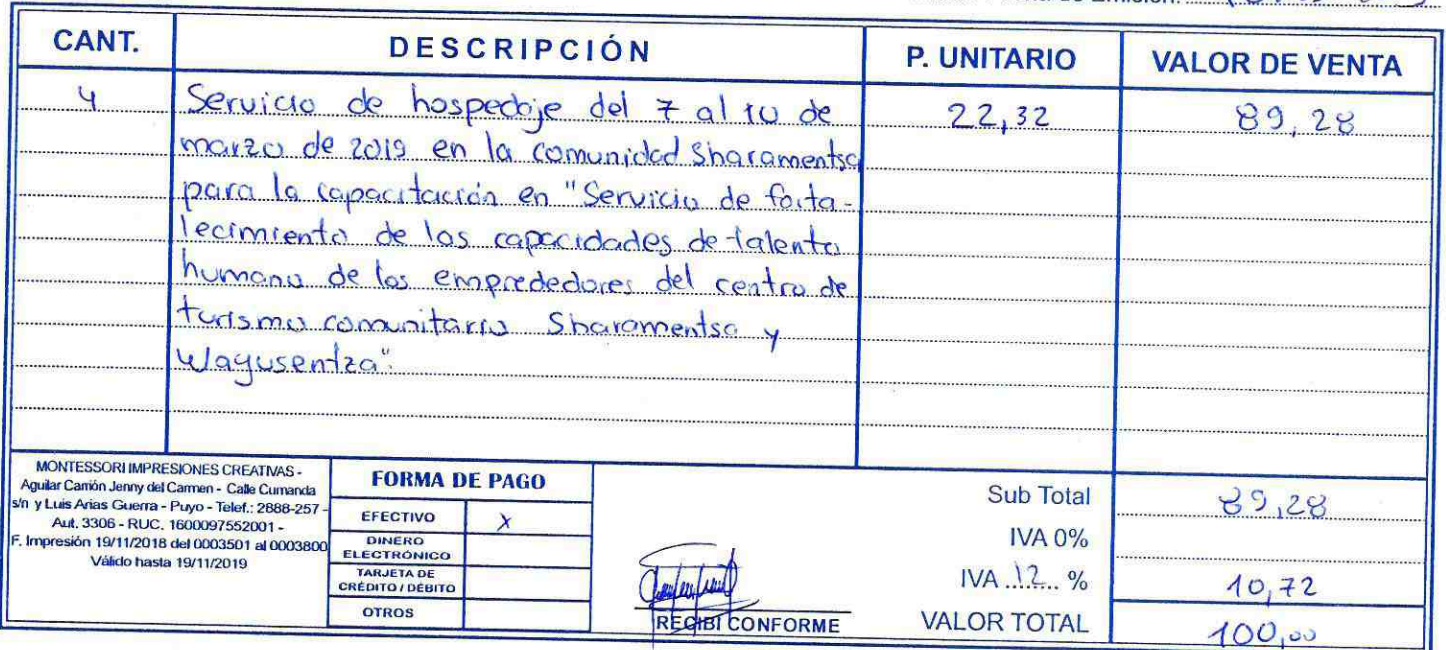 de Emisión:
CANT. DESCRIPCIÓN P. UNITARIO VALOR DE VENTA
4 Servicio de hospedaje del 7 al 10 de 22,32 89,28
marzo de 2019 en la comunidad Sharamentsa
para la capacitación en "Servicio de forta-
lecimiento de las capacidades de talento
humano de los emprededores del centro de
turismo comunitario Sharamentsa y
Wayusentza".
MONTESSORI IMPRESIONES CREATIVAS -
Aguilar Carrión Jenny del Carmen - Calle Cumanda
s/n y Luis Arias Guerra - Puyo - Telef.: 2888-257 -
Aut. 3306 - RUC. 1600097552001 -
F. Impresión 19/11/2018 del 0003501 al 0003800
Válido hasta 19/11/2019
FORMA DE PAGO
EFECTIVO X
DINERO
ELECTRÓNICO
TARJETA DE
CRÉDITO / DÉBITO
OTROS
RECIBI CONFORME
Sub Total 89,28
IVA 0%
IVA 12 % 10,72
VALOR TOTAL 100,00